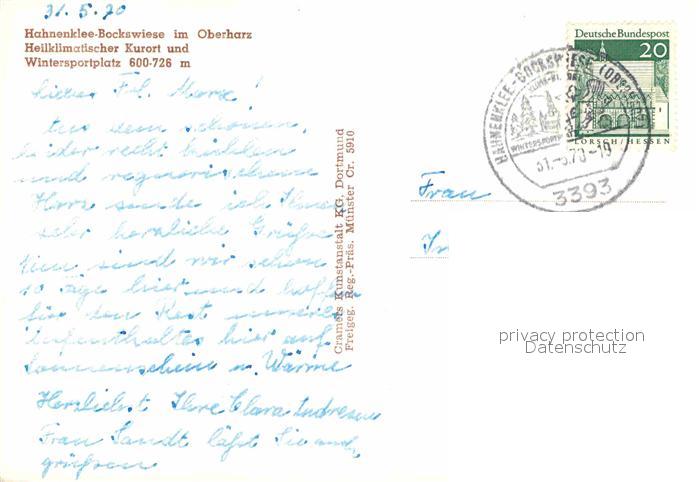 31.5.70
Hahnenklee-Bockswiese im Oberharz
Heilklimatischer Kurort und
Wintersportplatz 600-726 m
Liebes Frl.
Aus dem schönen,
leider recht kühlen
und regnerischen
Harz sende ich Ihnen
sehr herzliche Grüße
Nun sind wir schon
10 Tage hier und hoffen
für den Rest unseres
Aufenthaltes hier auf
Sonnenschein u. Wärme
Herzlichst Ihre Clara Andresen
Frau Sandt läßt Sie auch
grüßen
Cramers Kunstanstalt KG. Dortmund
Freigeg. Reg.-Präs. Münster Cr. 5910
Deutsche Bundespost
20
LORSCH/HESSEN
HAHNENKLEE-BOCKSWIESE (OBERHARZ)
WINTERSPORT
31.-5.70-19
3393
Frau
In
privacy protection
Datenschutz